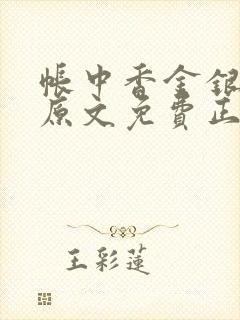 帳中香金銀
原文免費正
王彩蓮